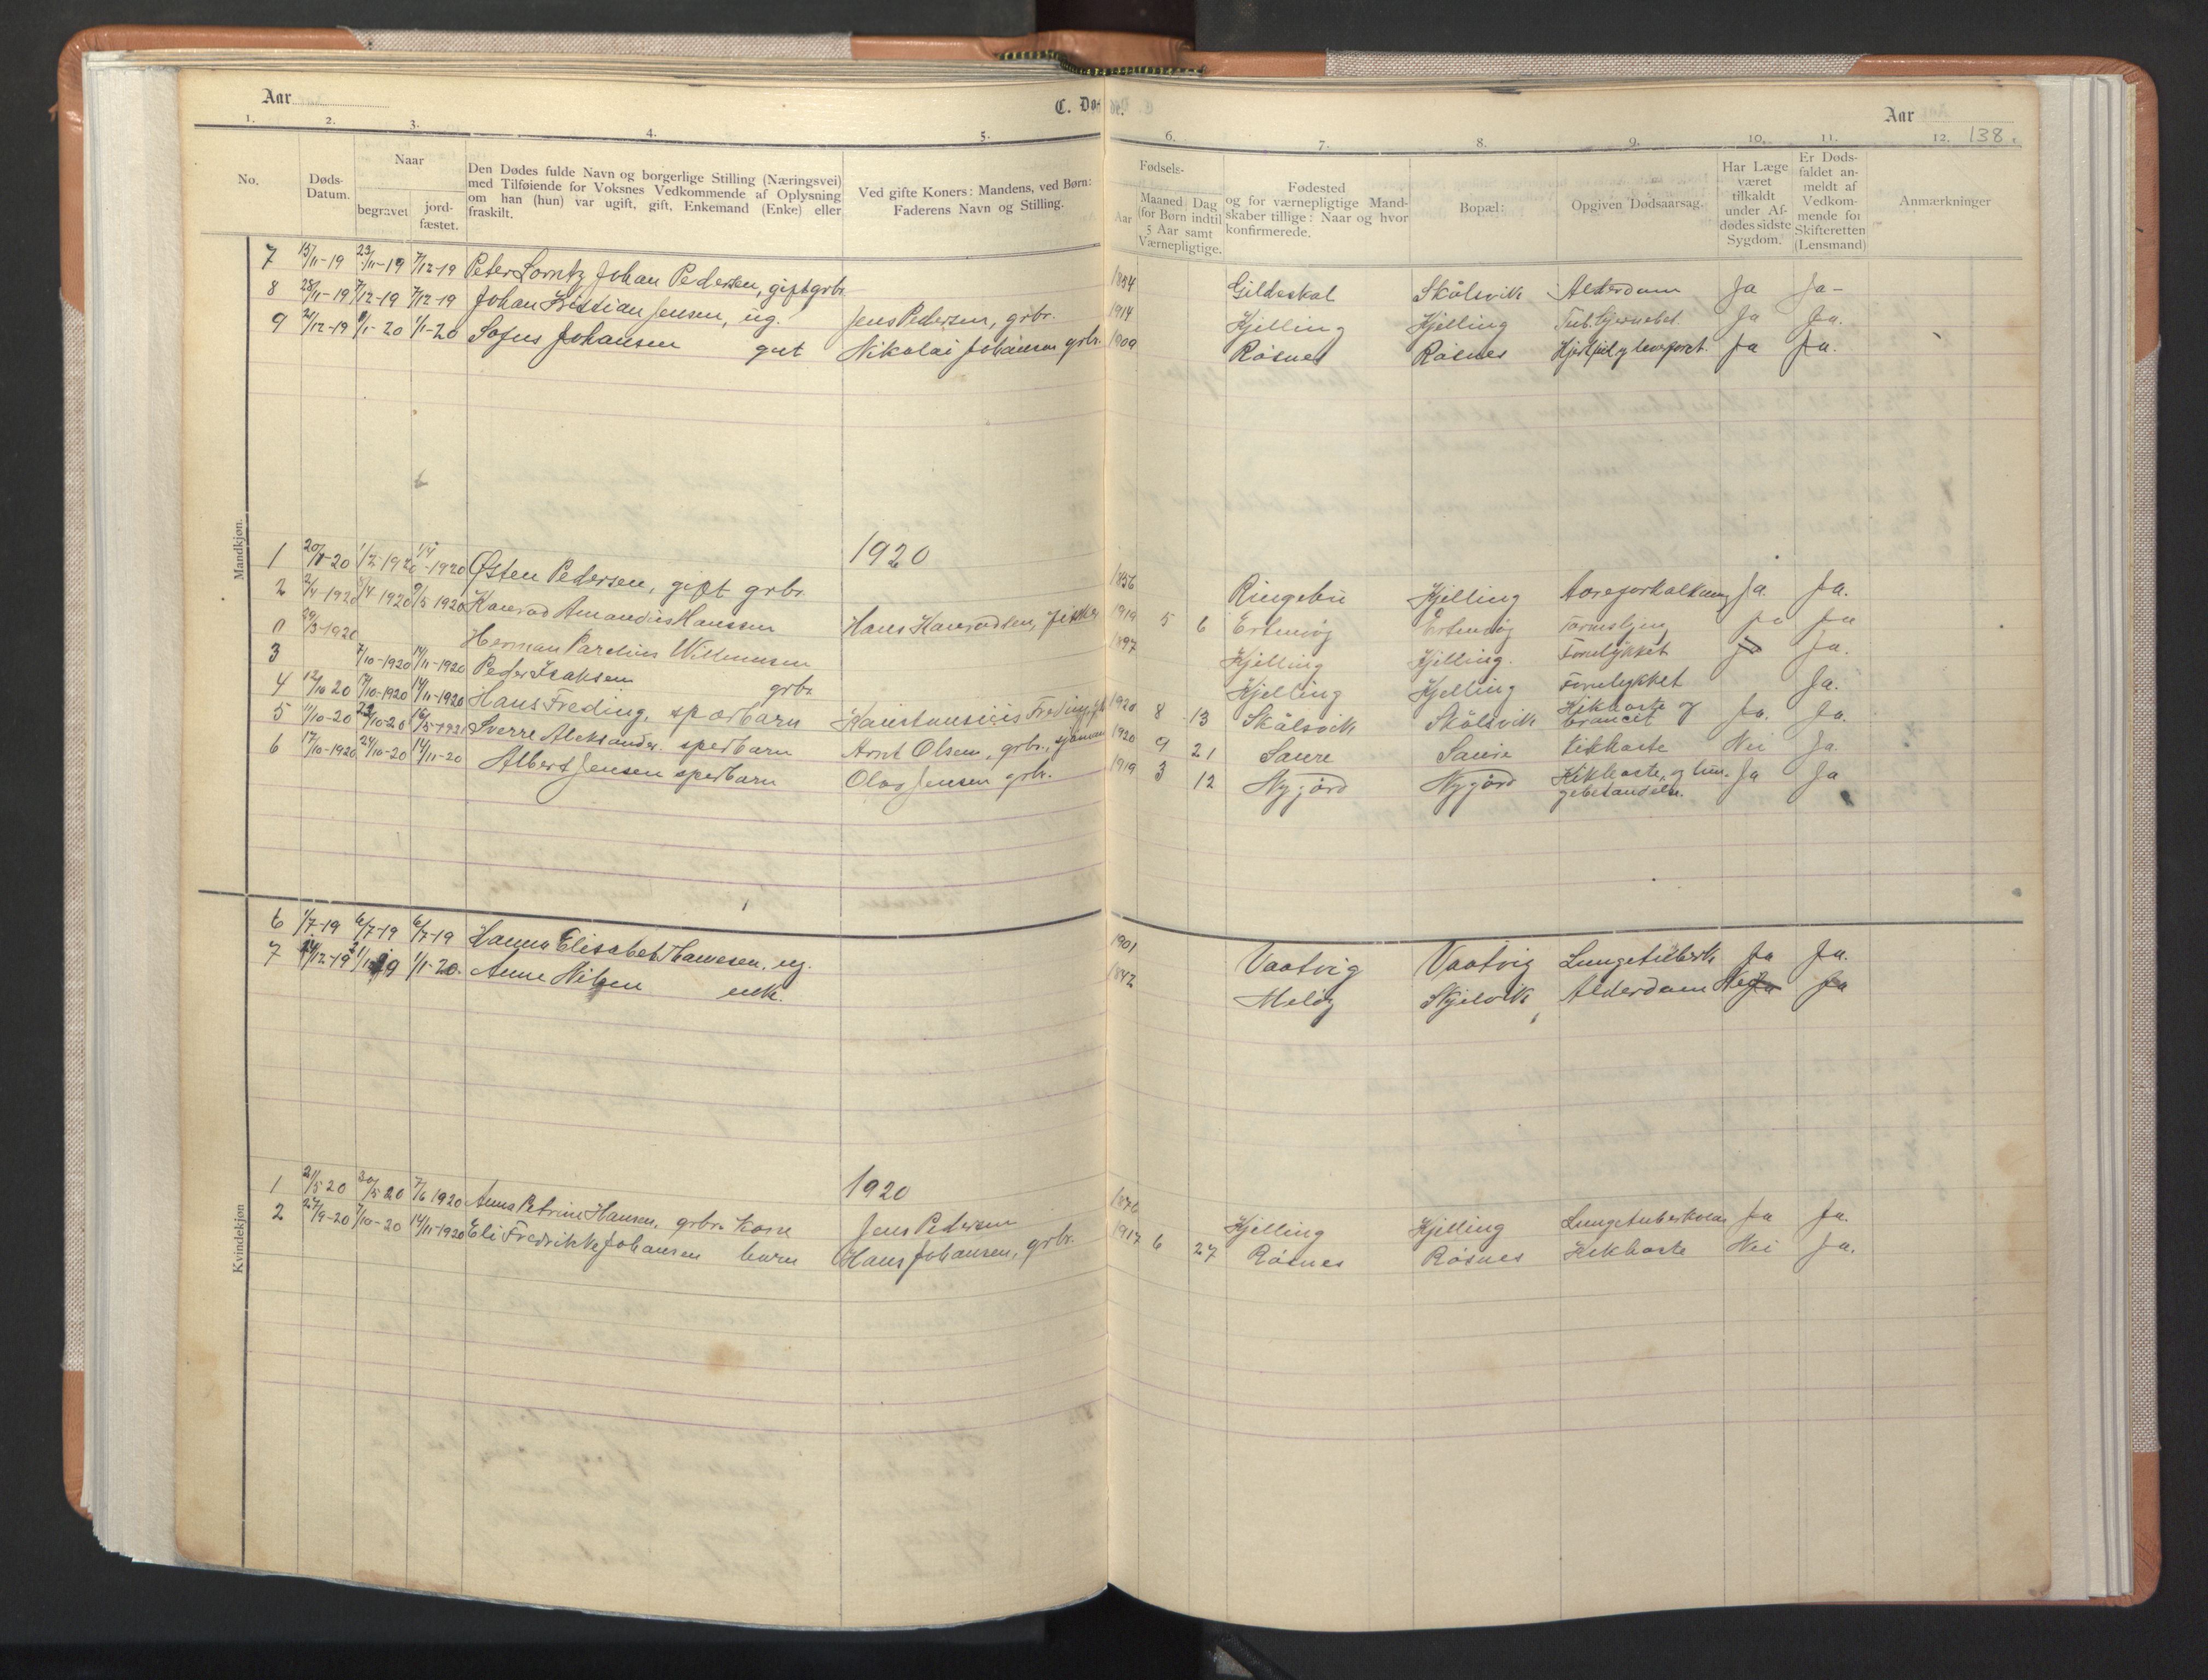 Aar
C. Døde.
Aar
138.
1. 2. 3. 4. 5. 6. 7. 8. 9. 10. 11. 12.
No.
Døds-Datum.
Naar
begravet
jord-fæstet.
Den Dødes fulde Navn og borgerlige Stilling (Næringsvei)
med Tilføiende for Voksnes Vedkommende af Oplysning
om han (hun) var ugift, gift, Enkemand (Enke) eller
fraskilt.
Ved gifte Koners: Mandens, ved Børn:
Faderens Navn og Stilling.
Fødsels-
Aar
Maaned Dag
(for Børn indtil
5 Aar samt
Værnepligtige.
Fødested
og for værnepligtige Mand-
skaber tillige: Naar og hvor
konfirmerede.
Bopæl:
Opgiven Dødsaarsag.
Har Læge
været
tilkaldt
under Af-
dødes sidste
Sygdom.
Er Døds-
faldet an-
meldt af
Vedkom-
mende for
Skifteretten
(Lensmand)
Anmærkninger
Mandkjøn.
7 15/11-19 23/11-19 7/12-19 Peter Lorntz Johan Pedersen, gift grbr 1834 Gildeskal Skålsvik Alderdom Ja Ja-
8 28/11-19 7/12-19 7/12-19 Johan Kristian Jensen, ug. Jens Pedersen, grbr. 1914 Kjelling Kjelling Tub. hjernebet. Ja Ja.
9 21/12-19 1/1-20 1/1-20 Sofus Johansen gut Nikolai Johansen grbr. 1909 Røsnes Røsnes Ja Ja.
1920
1 20/1-20 1/2-1920 1/4-1920 Østen Pedersen, gift grbr. 1856 Ringebu Kjelling Aareforkalkning Ja. Ja.
2 2/4-1920 5/4-1920 9/5 1920 Konrad Amandus Hanssen Hans Konradsen, fisker 1919 5 6 Ertenvøg Ertenvøg Tarmslyng Ja Ja
0 29/3-1920 Herman Parelius Willumsen 1897 Kjelling Kjelling. Forulykket Ja.
3 7/10-1920 14/11-1920 Peder Isaksen grbr. Kjelling Kjelling Forulykket Ja.
4 12/10 20 17/10-1920 14/11-1920 Hans Freding, spærbarn Freding 1920 8 13 Skålsvik Skålsvik Kikhoste og Ja. Ja.
5 11/10-20 22/10-20 16/5-1921 Sverre Aleksander. spedbarn Arnt Olsen, grbr., sjømann 1920 9 21 Saure Saure Kikhoste Nei Ja.
6 17/10-1920 24/10-20 14/11-20 Albert Jensen spedbarn Olav Jensen grbr. 1919 3 12 Nygård Nygård Kikhoste, og lun-
gebetændelse. Ja Ja
6 1/7-19 6/7-19 6/7-19 Hanna Elisabet Hansen, ug. 1901 Vaatvig Vaatvig Lungetuberk Ja Ja.
7 1/1-20. Anne Nilsen enk. 1842 Meløy Skjelvik Alderdom Nei Ja
Kvindekjøn
1920
1 21/5 20 30/5 20 7/6 1920 Anna Petrine Hansen, grbr. kone Jens Pedersen 1876 Kjelling Kjelling Lungetuberkulose Ja Ja.
2 27/9-20 7/10-20 14/11-1920 Eli Fredrikke Johansen barn Hans Johansen, grbr. 1917 6 27 Røsnes Røsnes Kikhoste Nei Ja.